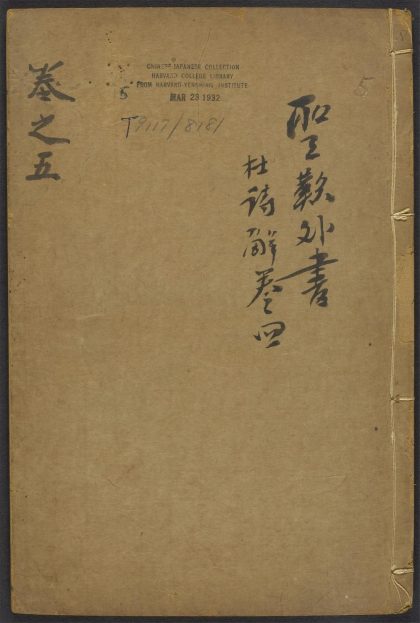 聖歎外書
杜詩解卷四
卷之五
CHINESE-JAPANESE COLLECTION
HARVARD COLLEGE LIBRARY
FROM HARVARD-YENCHING INSTITUTE
MAR 23 1932
5
T9117/8181
5